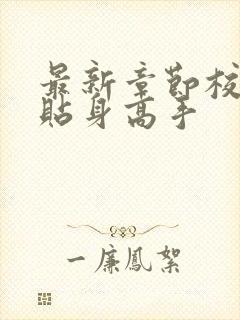 最新章節校
貼身高手
一廉鳳絮